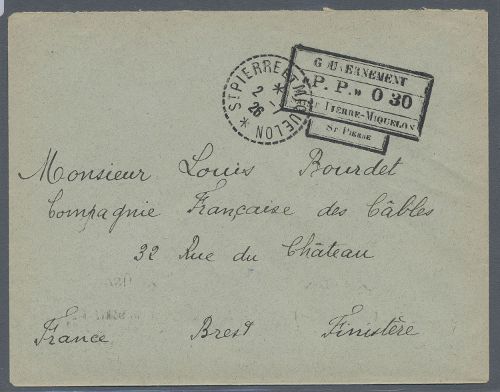 ST PIERRE ET MIQUELON
2 - 1
26
GOUVERNEMENT
«P. P.» 0 30
St PIERRE-MIQUELON
St PIERRE
Monsieur Louis Bourdet
Compagnie Française des Câbles
32 Rue du Château
France Brest Finistère